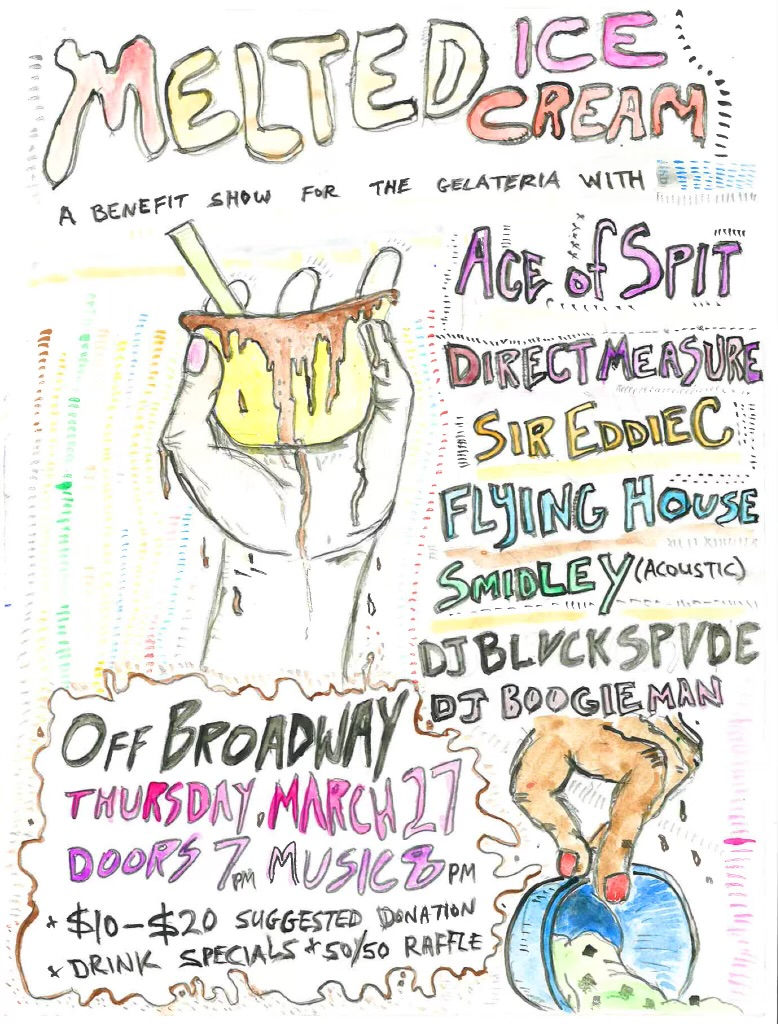 MELTED ICE CREAM
A BENEFIT SHOW FOR THE GELATERIA WITH
ACE of SPIT
DIRECT MEASURE
SIR EDDIE C
FLYING HOUSE
SMIDLEY (ACOUSTIC)
DJ BLVCKSPVDE
DJ BOOGIEMAN
OFF BROADWAY
THURSDAY, MARCH 27
DOORS 7PM MUSIC 8PM
* $10-$20 SUGGESTED DONATION
* DRINK SPECIALS * 50/50 RAFFLE